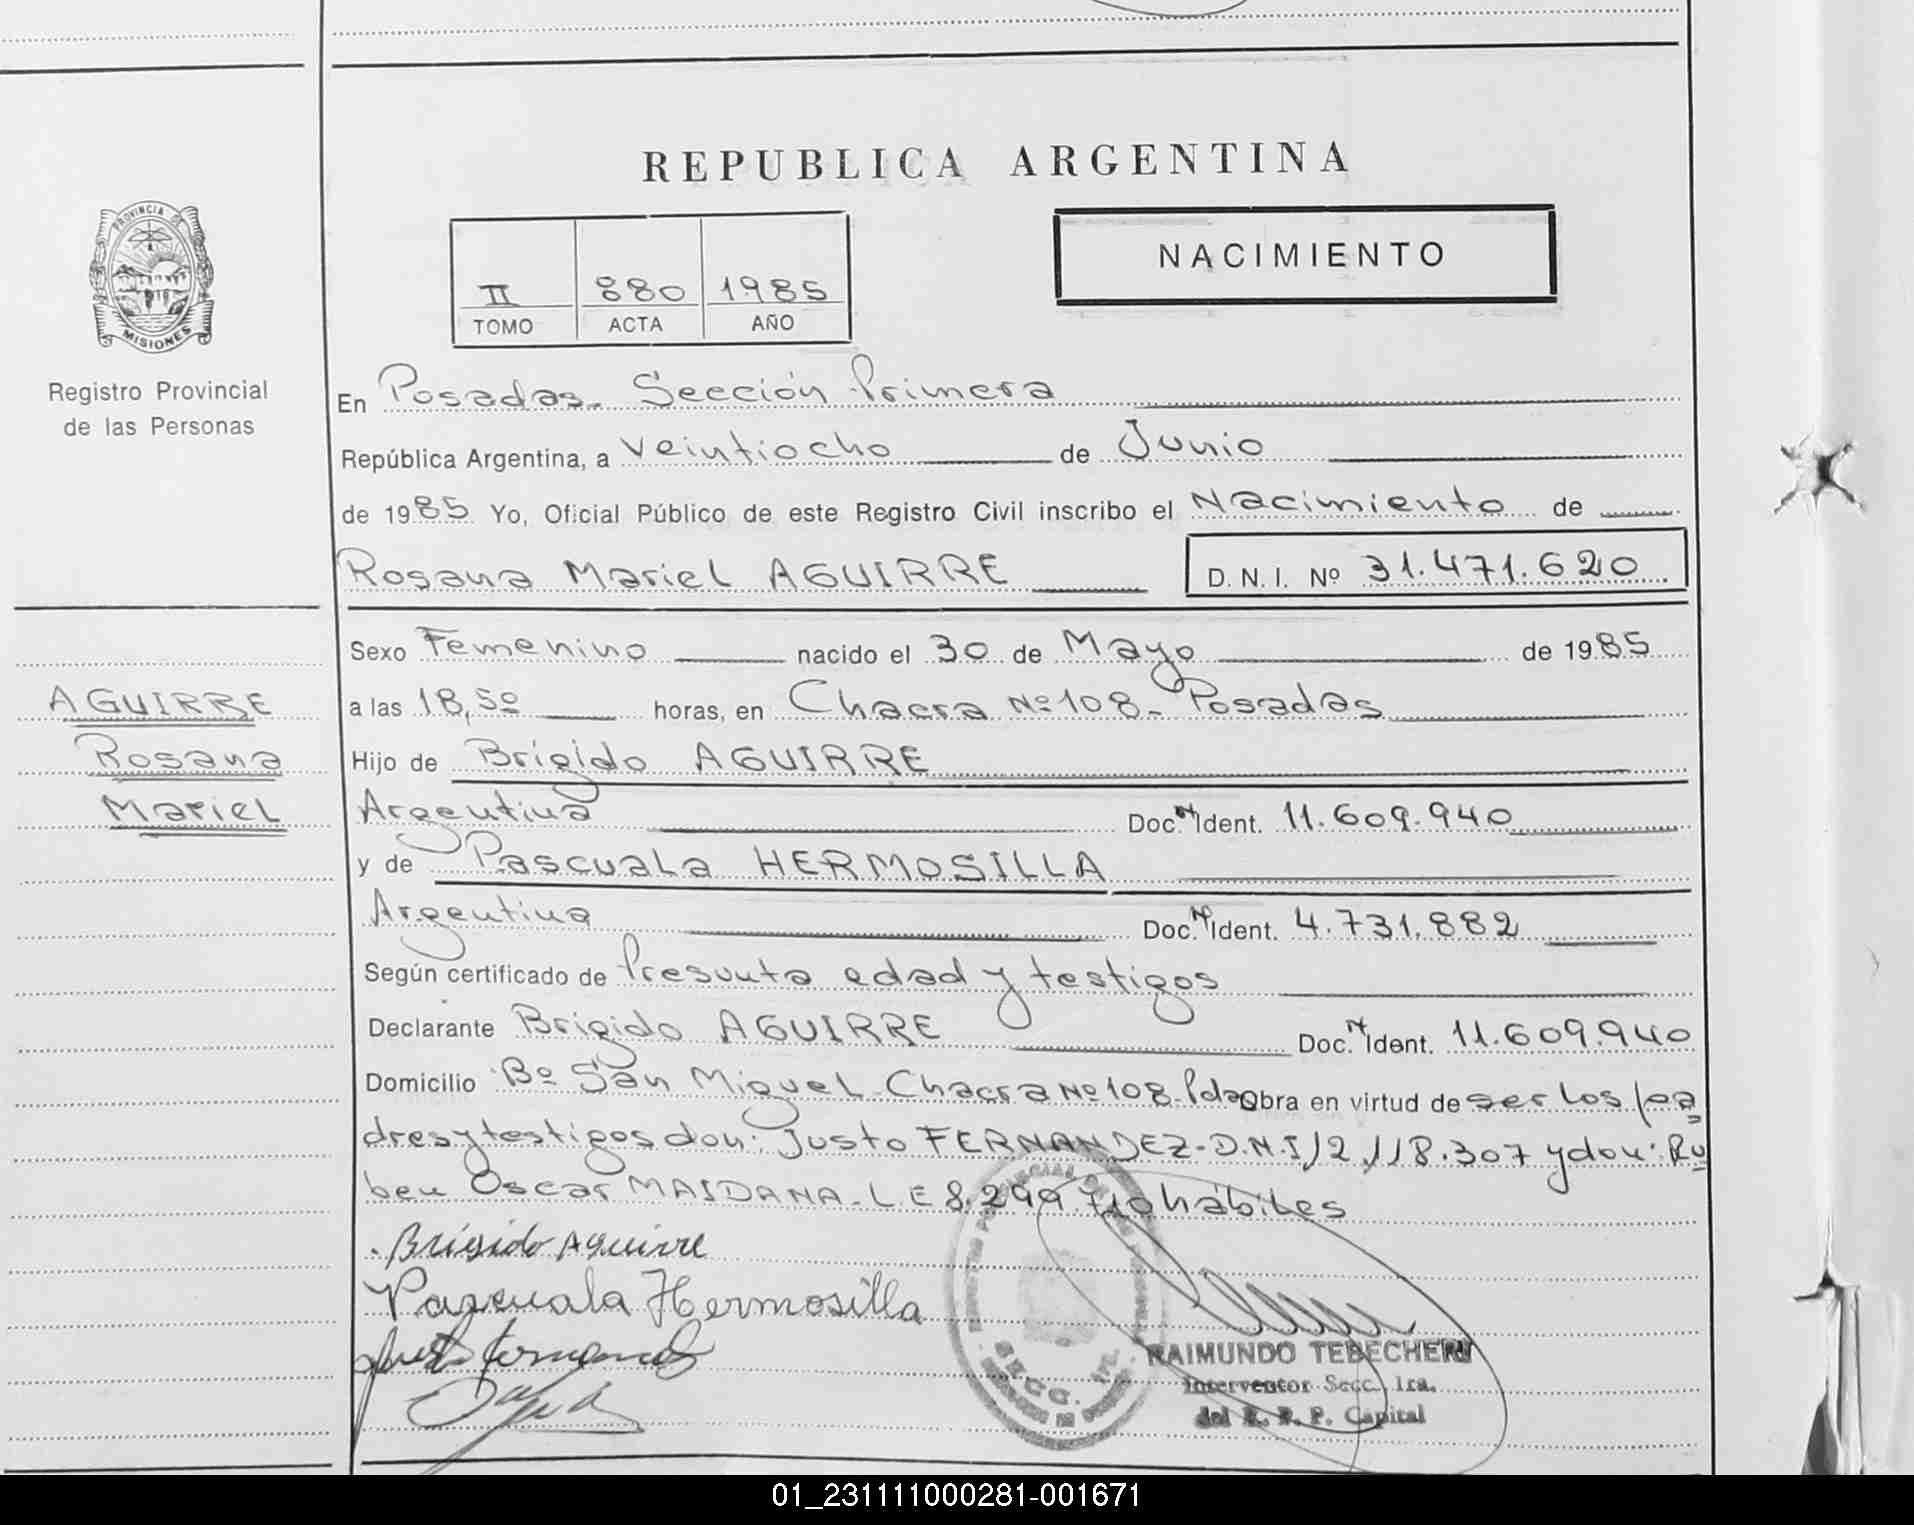 REPUBLICA ARGENTINA
PROVINCIA DE
MISIONES
Registro Provincial
de las Personas
II 880 1985
TOMO ACTA AÑO
NACIMIENTO
En Posadas. Sección Primera
República Argentina, a Veintiocho de Junio
de 1985 Yo, Oficial Público de este Registro Civil inscribo el Nacimiento de
Rosana Mariel AGUIRRE D. N. I. Nº 31.471.620
Sexo Femenino nacido el 30 de Mayo de 1985
AGUIRRE
Rosana
Mariel
a las 18,50 horas, en Chacra Nº 108- Posadas
Hijo de Brígido AGUIRRE
Argentina Doc. Ident. 11.609.940
y de Pascuala HERMOSILLA
Argentina Doc. Ident. 4.731.882
Según certificado de Presunta edad y testigos
Declarante Brigido AGUIRRE Doc. Ident. 11.609.940
Domicilio Bº San Miguel-Chacra Nº 108-Pdas Obra en virtud de ser los pa
dres y testigos don: Justo FERNANDEZ-D.N.I 12.118.307 y don: Ru
ben Oscar MAIDANA-L E 8.299.710 hábiles
Brígido Aguirre
Pascuala Hermosilla
SECC. 1ra.
RAIMUNDO TEBECHERI
Interventor Secc. 1ra.
del R. P. P. Capital
01_231111000281-001671